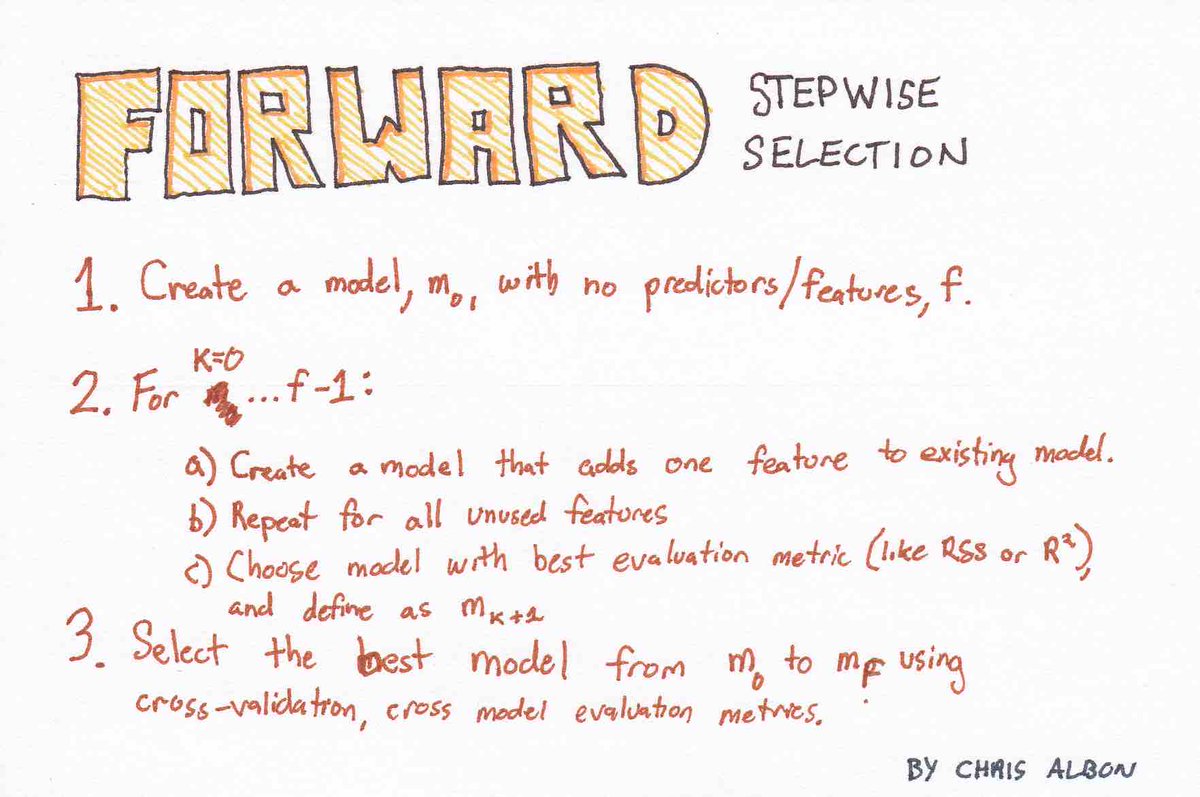 FORWARD STEPWISE
SELECTION
1. Create a model, m₀, with no predictors/features, f.
K=0
2. For ...f-1:
a) Create a model that adds one feature to existing model.
b) Repeat for all unused features
c) Choose model with best evaluation metric (like RSS or R²),
and define as m K+1
3. Select the best model from m₀ to mF using
cross-validation, cross model evaluation metrics.
BY CHRIS ALBON